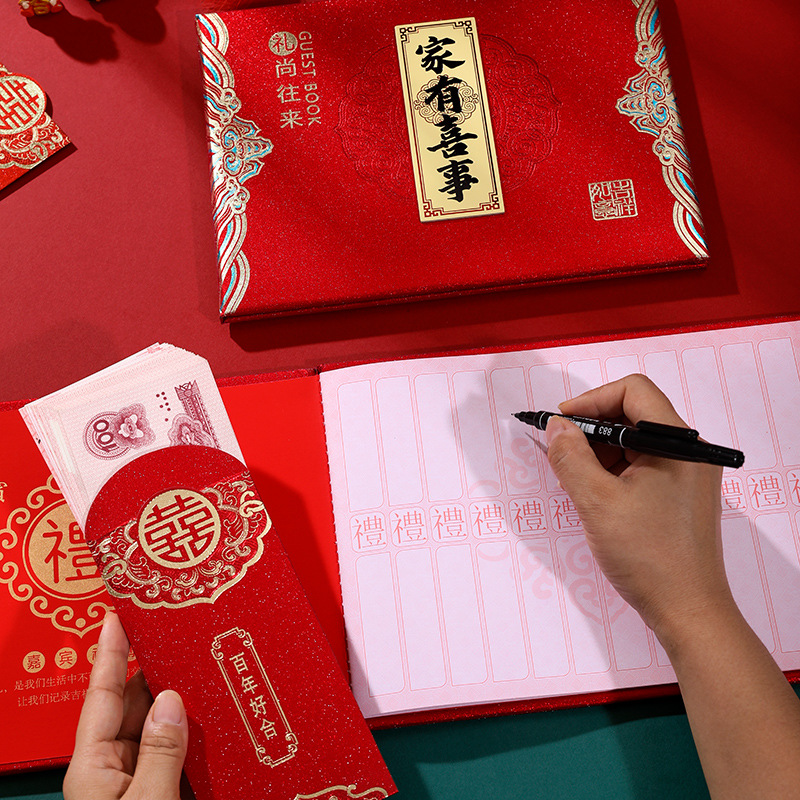 礼尚往来
GUEST BOOK
家有喜事
吉祥
囍
100
883
禮禮禮禮禮禮
禮禮禮
禮
嘉宾
是我们生活中不
让我们记录吉祥
囍
百年好合